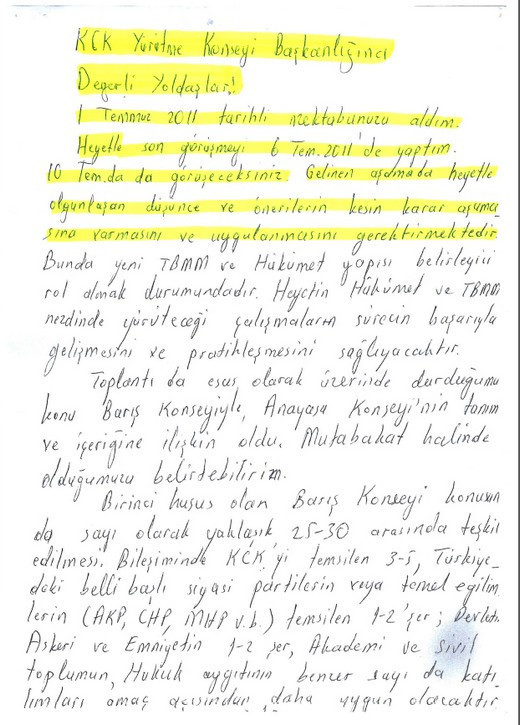 KCK Yürütme Konseyi Başkanlığına
Değerli Yoldaşlar!
1 Temmuz 2011 tarihli mektubunuzu aldım.
Heyetle son görüşmeyi 6 Tem. 2011'de yaptım.
10 Tem.da da görüşeceksiniz. Gelinen aşamada heyetle
olgunlaşan düşünce ve önerilerin kesin karar aşuma
sına varmasını ve uygulanmasını gerektirmektedir.
Bunda yeni TBMM ve Hükümet yapısı belirleyici
rol almak durumundadır. Heyetin Hükümet ve TBMM
nezdinde yürüteceği çalışmaların sürecin başarıyla
gelişmesini ve pratikleşmesini sağlıyacaktır.
Toplantı da esas olarak üzerinde durduğumu
konu Barış Konseyiyle, Anayasa Konseyi'nin tanım
ve içeriğine ilişkin oldu. Mutabakat halinde
olduğumuzu belirtebilirim.
Birinci husus olan Barış Konseyi konusun
da sayı olarak yaklaşık 25-30 arasında teşkil
edilmesi. Bileşiminde KCK'yi temsilen 3-5, Türkiye
deki belli başlı siyasi partilerin veya temel eğilim
lerin (AKP, CHP, MHP v.b.) temsilen 1-2'şer; Devletin
Askeri ve Emniyetin 1-2 şer, Akademi ve sivil
toplumun, Hukuk aygıtının benzer sayı da katı
lımları amaç açısından daha uygun olacaktır